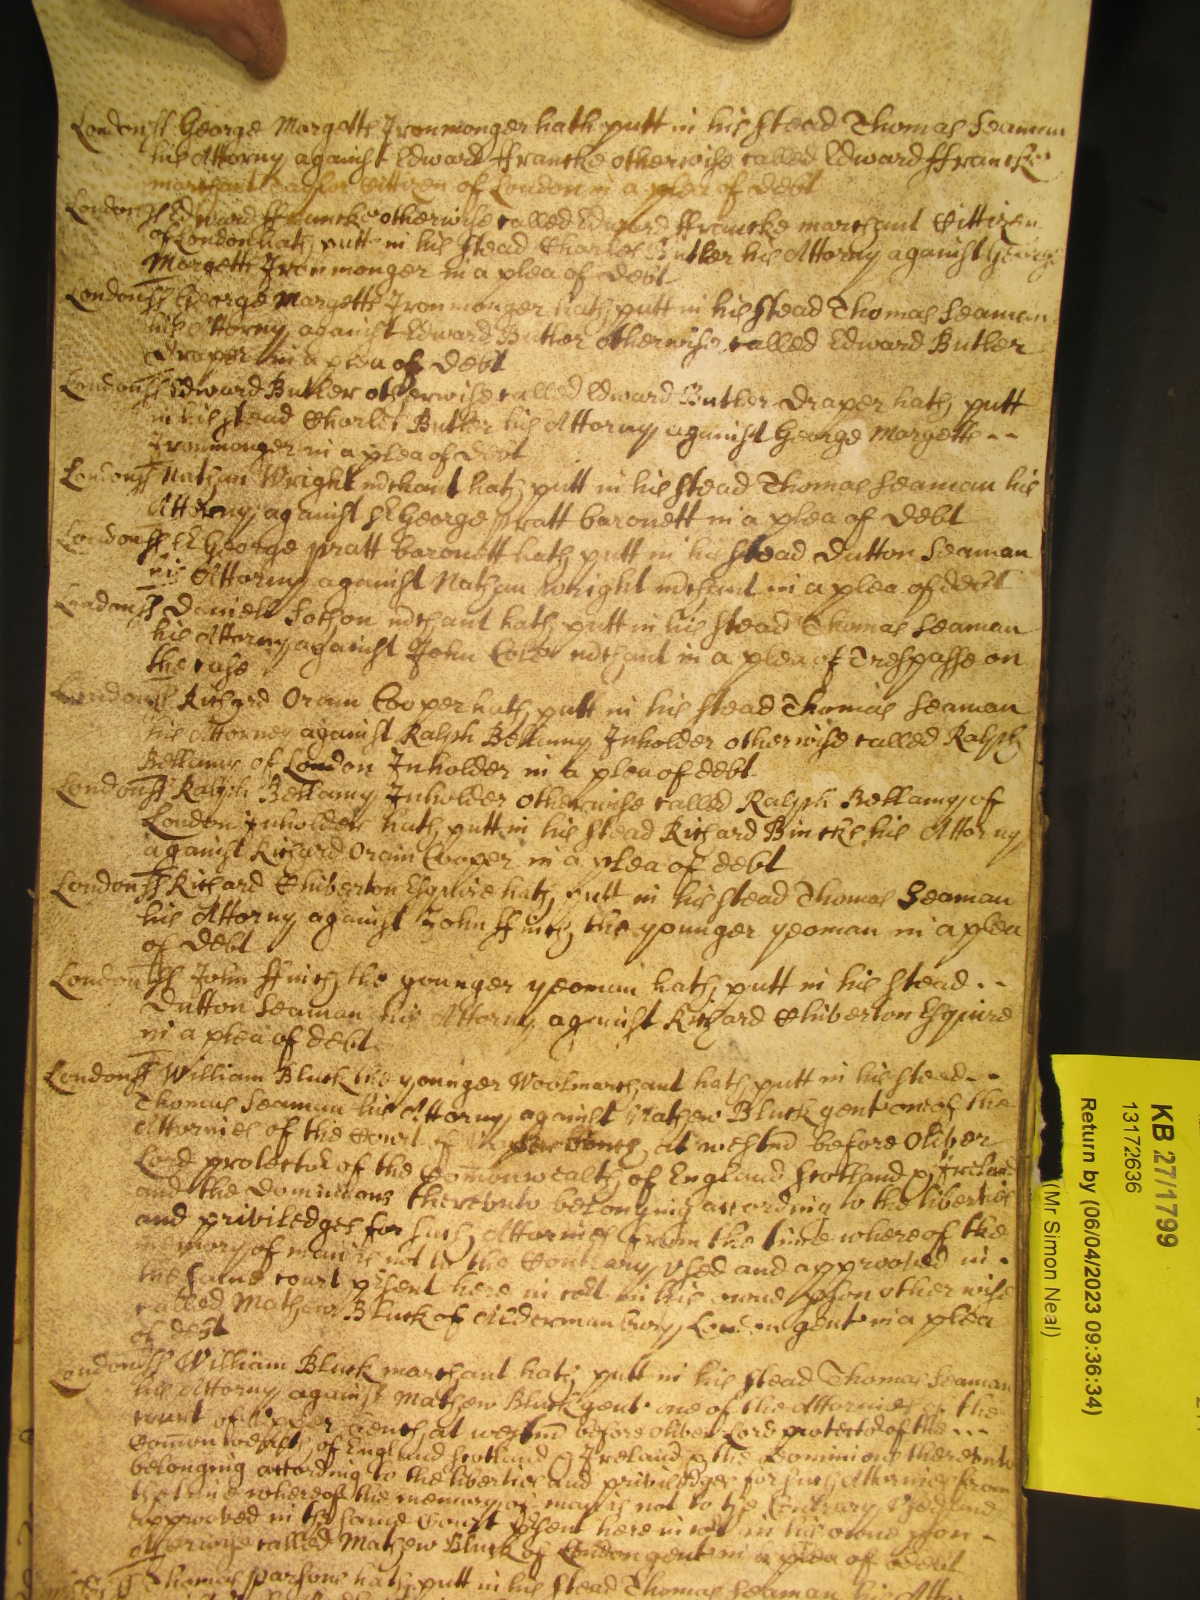 London ss George Margetts Ironmonger hath putt in his stead Thomas Seaman
his Attorny against Edward ffrancke otherwise called Edward ffrancke
marchant Taylor Cittizen of London in a plea of debt
London ss Edward ffrancke otherwise called Edward ffrancke marchant Cittizen
of London hath putt in his stead Charles Butler his Attorny against George
Margetts Ironmonger in a plea of debt
London ss George Margetts Ironmonger hath putt in his stead Thomas Seaman
his Attorny against Edward Butler otherwise called Edward Butler
Draper in a plea of debt
London ss Edward Butler otherwise called Edward Butler Draper hath putt
in his stead Charles Butler his Attorny against George Margetts - -
Ironmonger in a plea of debt
London ss Nathan Wright mchant hath putt in his stead Thomas Seaman his
Attorny against Sr George pratt baronett in a plea of debt
London ss Sr George pratt baronett hath putt in his stead Dutton Seaman
his Attorny against Nathan Wright mchant in a plea of debt
London ss Daniell mchant hath putt in his stead Thomas Seaman
his Attorny against John mchant in a plea of Trespasse on
the case
London ss Richard Oram Cooper hath putt in his stead Thomas Seaman
his Attorney against Ralph Bellamy Inholder otherwise called Ralph
Bellamy of London Inholder in a plea of debt
London ss Ralph Bellamy Inholder otherwise called Ralph Bellamy of
London Inholder hath putt in his stead Richard Bincks his Attorny
against Richard Oram Cooper in a plea of debt
London ss Richard Chiverton Esquire hath putt in his stead Thomas Seaman
his Attorny against John ffinch the younger yeoman in a plea
of debt
London ss John ffinch the younger yeoman hath putt in his stead - -
Dutton Seaman his Attorny against Richard Chiverton Esquire
in a plea of debt
London ss William Bluck the younger Woolmarchant hath putt in his stead - -
Thomas Seaman his Attorny against Mathew Bluck gent one of the
Attornies of the Court of upper bench at westm before Oliver
Lord protector of the Comonwealth of England Scotland & Ireland
and the Dominions thereunto belonging according to the liberties
and priviledges for such Attornies from the time whereof the
memory of man is not to the Contrary used and approoved in -
the same court psent here in cort in his owne pson otherwise
called Mathew Bluck of Aldermanbury London gent in a plea
of debt
London ss William Bluck marchant hath putt in his stead Thomas Seaman
his Attorny against Mathew Bluck gent one of the Attornies of the
court of Upper bench at westm before Oliver Lord protector of the - - -
Comon wealth of England Scotland & Ireland & the Dominions thereunto
belonging according to the liberties and priviledges for such Attornies from
the time whereof the memory of man is not to the Contrary Used and
approoved in the same Court psent here in cort in his owne pson -
otherwise called Mathew Bluck of London gent in a plea of debt
Thomas parsons hath putt in his stead Thomas Seaman his Attor
KB 27/1799
13172636
Return by (06/04/2023 09:36:34)
(Mr Simon Neal)